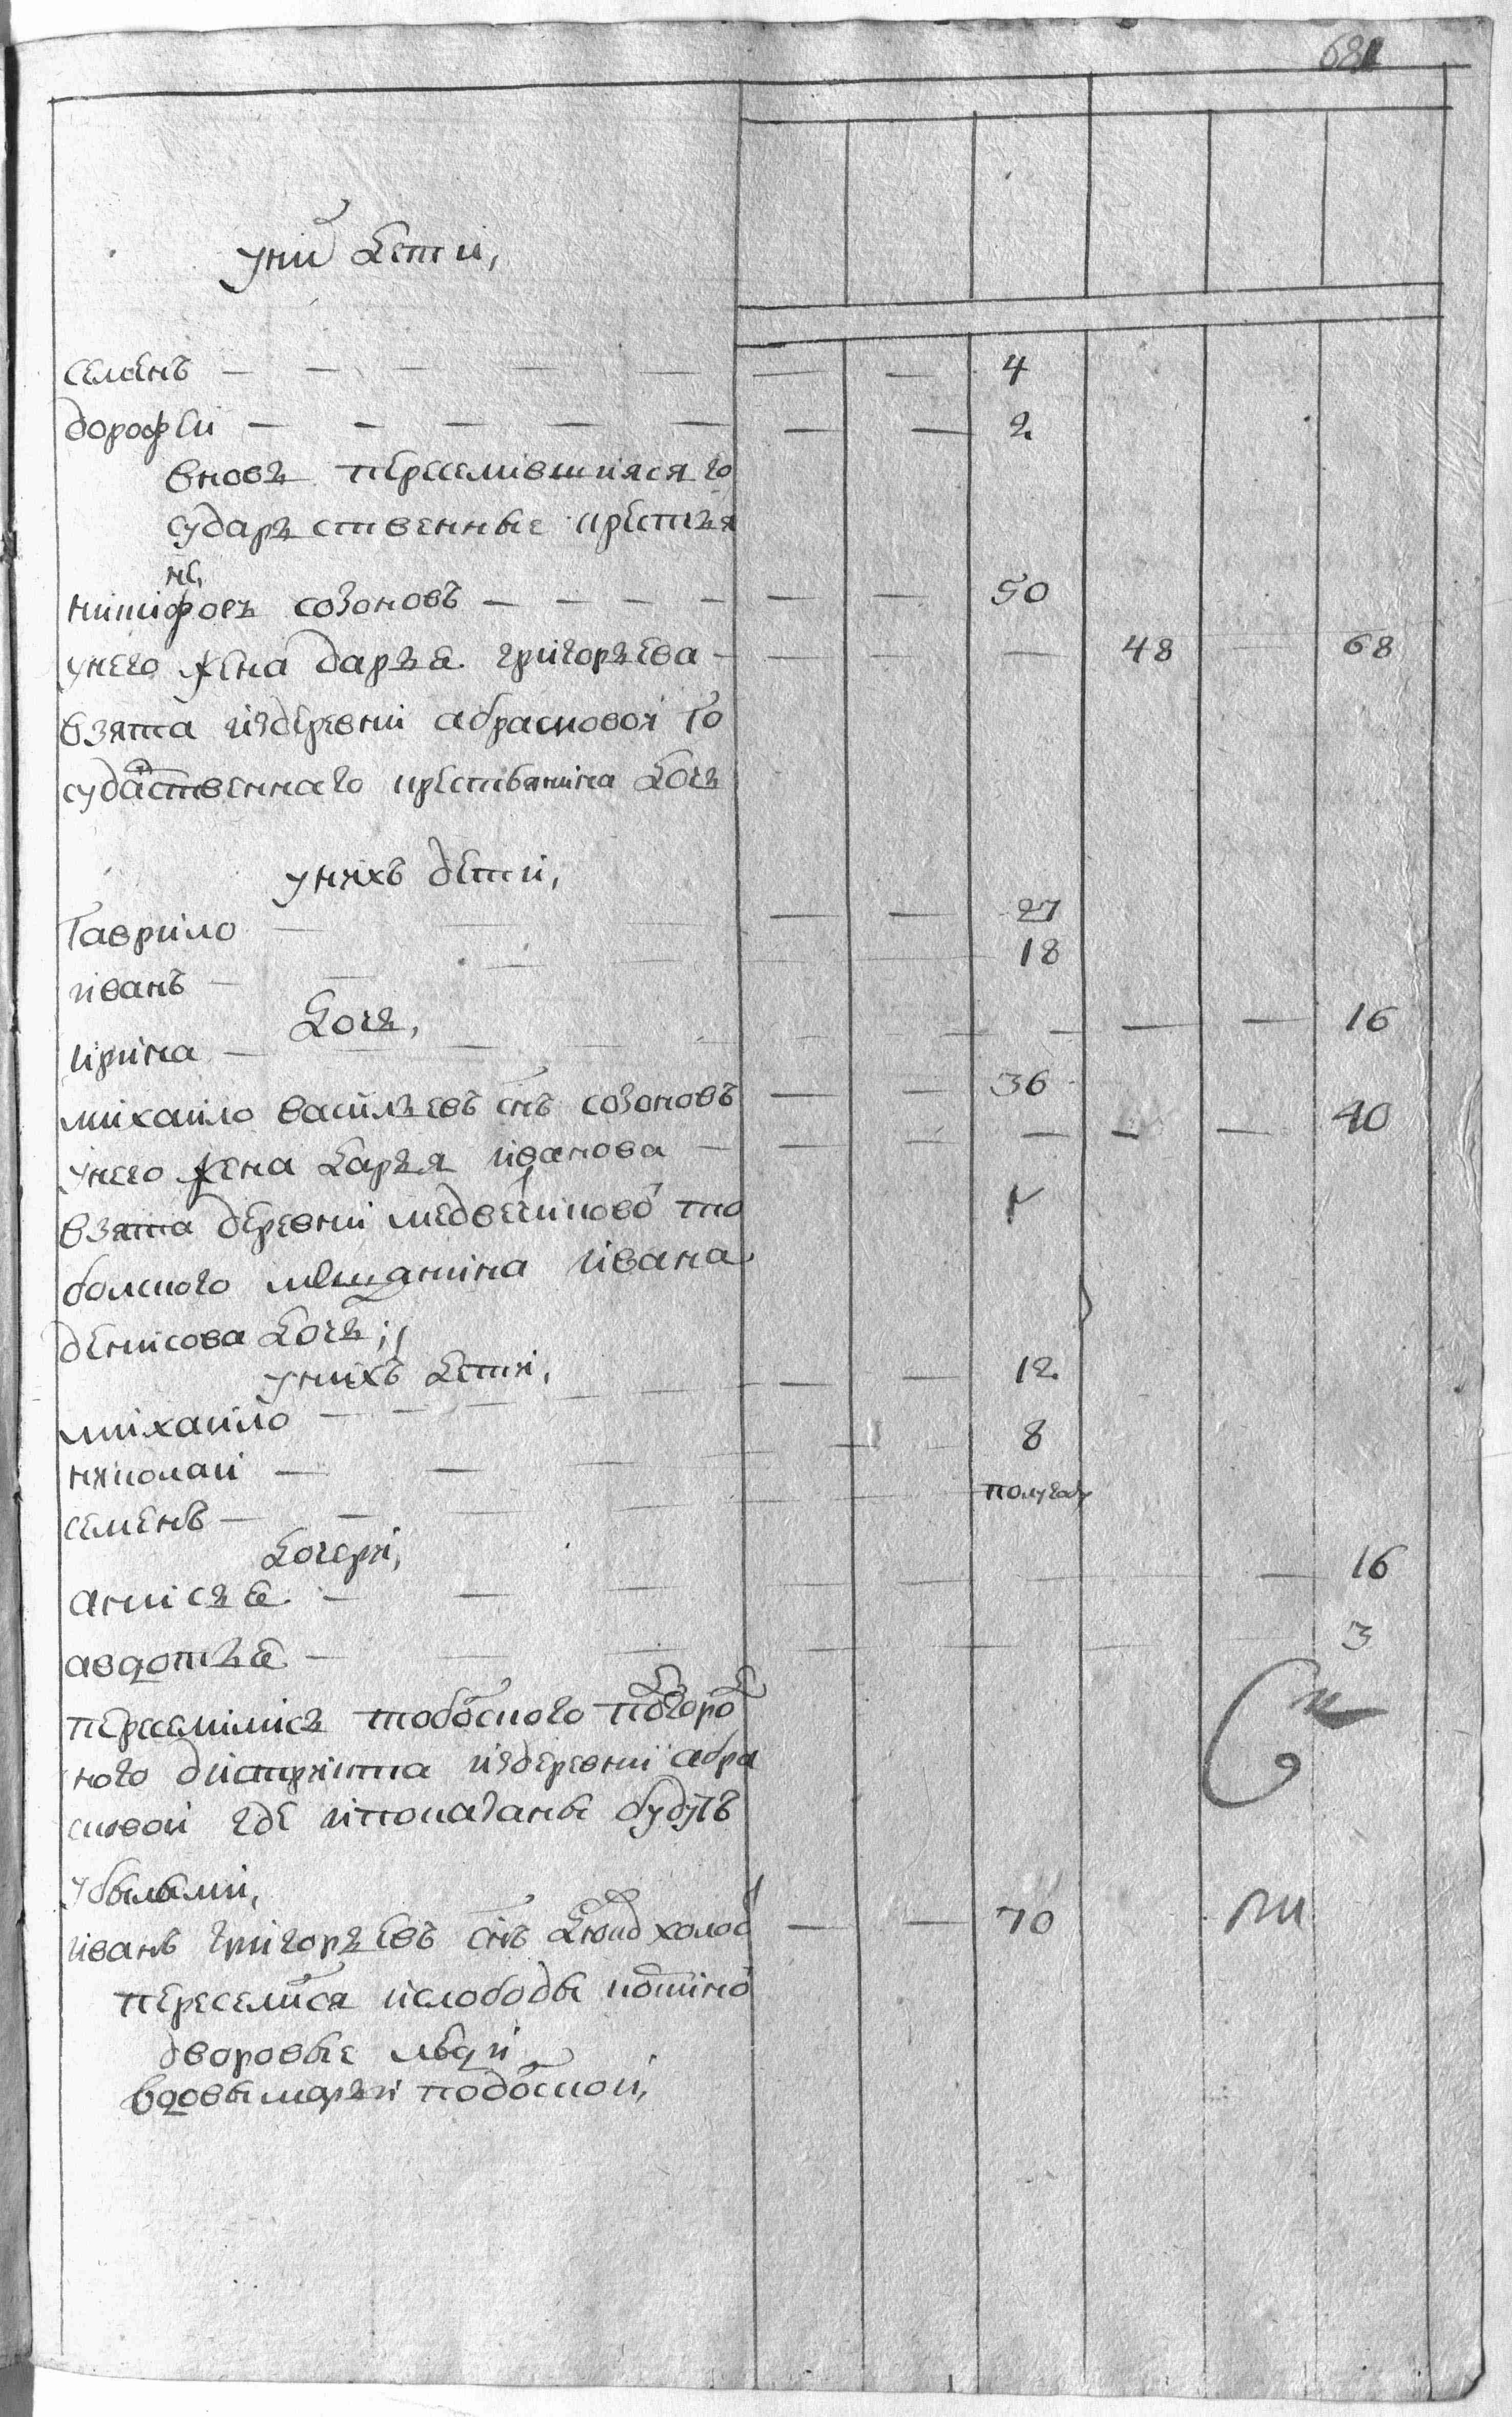 681
у них дети,
семенъ — — — — — — — 4
дорофеи — — — — — — — 2
вновь переселившияся го
сударственные крестья
не,
никифоръ созоновъ — — — — — — 50
у него жена дарья григорьева — — — — 48 — 68
взята из деревни абрамовой го
сударственнаго крестьянина дочь
у нихъ дети,
гаврило — — — — 27
иванъ — — — — 18
дочь,
ирина — — — — — — — 16
михаило васильевъ снъ созоновъ — — 36
у него жена дарья иванова — — — — — — 40
взята деревни медвечиковой то
болского мещанина ивана
денисова дочь;
у нихъ дети,
михаило — — — — — 12
николаи — — — — 8
семенъ — — — полугоду
дочери,
анисья — — — — — 16
авдотья — — — — — 3
переселились тобольского подгород
ного дистрикта из деревни абра
мовой где и показаны будутъ
убылыми,
иванъ григорьевъ снъ — — 70
переселился и слободы
дворовые люди
вдовы марьи